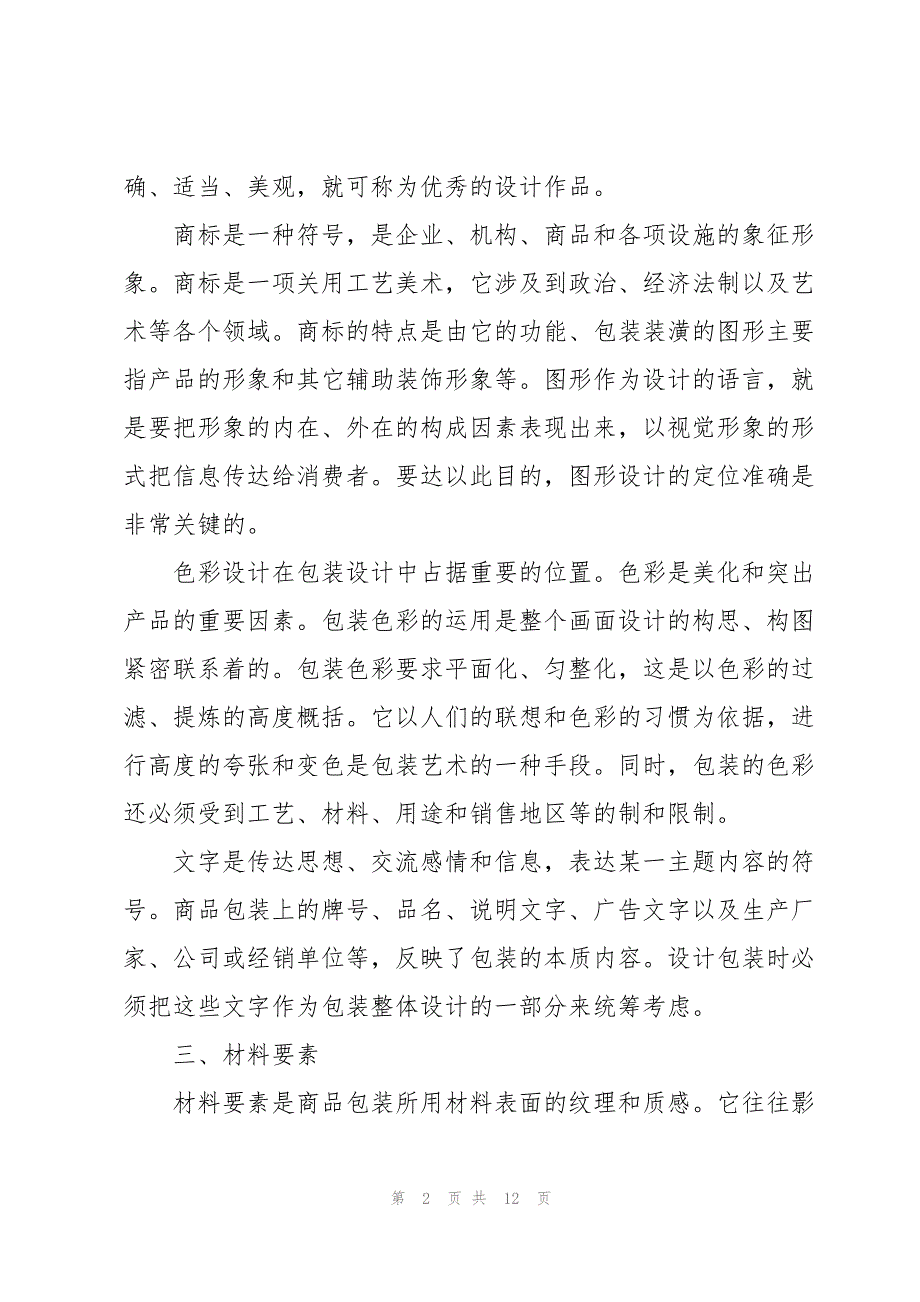 确、适当、美观，就可称为优秀的设计作品。
商标是一种符号，是企业、机构、商品和各项设施的象征形
象。商标是一项关用工艺美术，它涉及到政治、经济法制以及艺
术等各个领域。商标的特点是由它的功能、包装装潢的图形主要
指产品的形象和其它辅助装饰形象等。图形作为设计的语言，就
是要把形象的内在、外在的构成因素表现出来，以视觉形象的形
式把信息传达给消费者。要达以此目的，图形设计的定位准确是
非常关键的。
色彩设计在包装设计中占据重要的位置。色彩是美化和突出
产品的重要因素。包装色彩的运用是整个画面设计的构思、构图
紧密联系着的。包装色彩要求平面化、匀整化，这是以色彩的过
滤、提炼的高度概括。它以人们的联想和色彩的习惯为依据，进
行高度的夸张和变色是包装艺术的一种手段。同时，包装的色彩
还必须受到工艺、材料、用途和销售地区等的制和限制。
文字是传达思想、交流感情和信息，表达某一主题内容的符
号。商品包装上的牌号、品名、说明文字、广告文字以及生产厂
家、公司或经销单位等，反映了包装的本质内容。设计包装时必
须把这些文字作为包装整体设计的一部分来统筹考虑。
三、材料要素
材料要素是商品包装所用材料表面的纹理和质感。它往往影
第 2 页 共 12 页